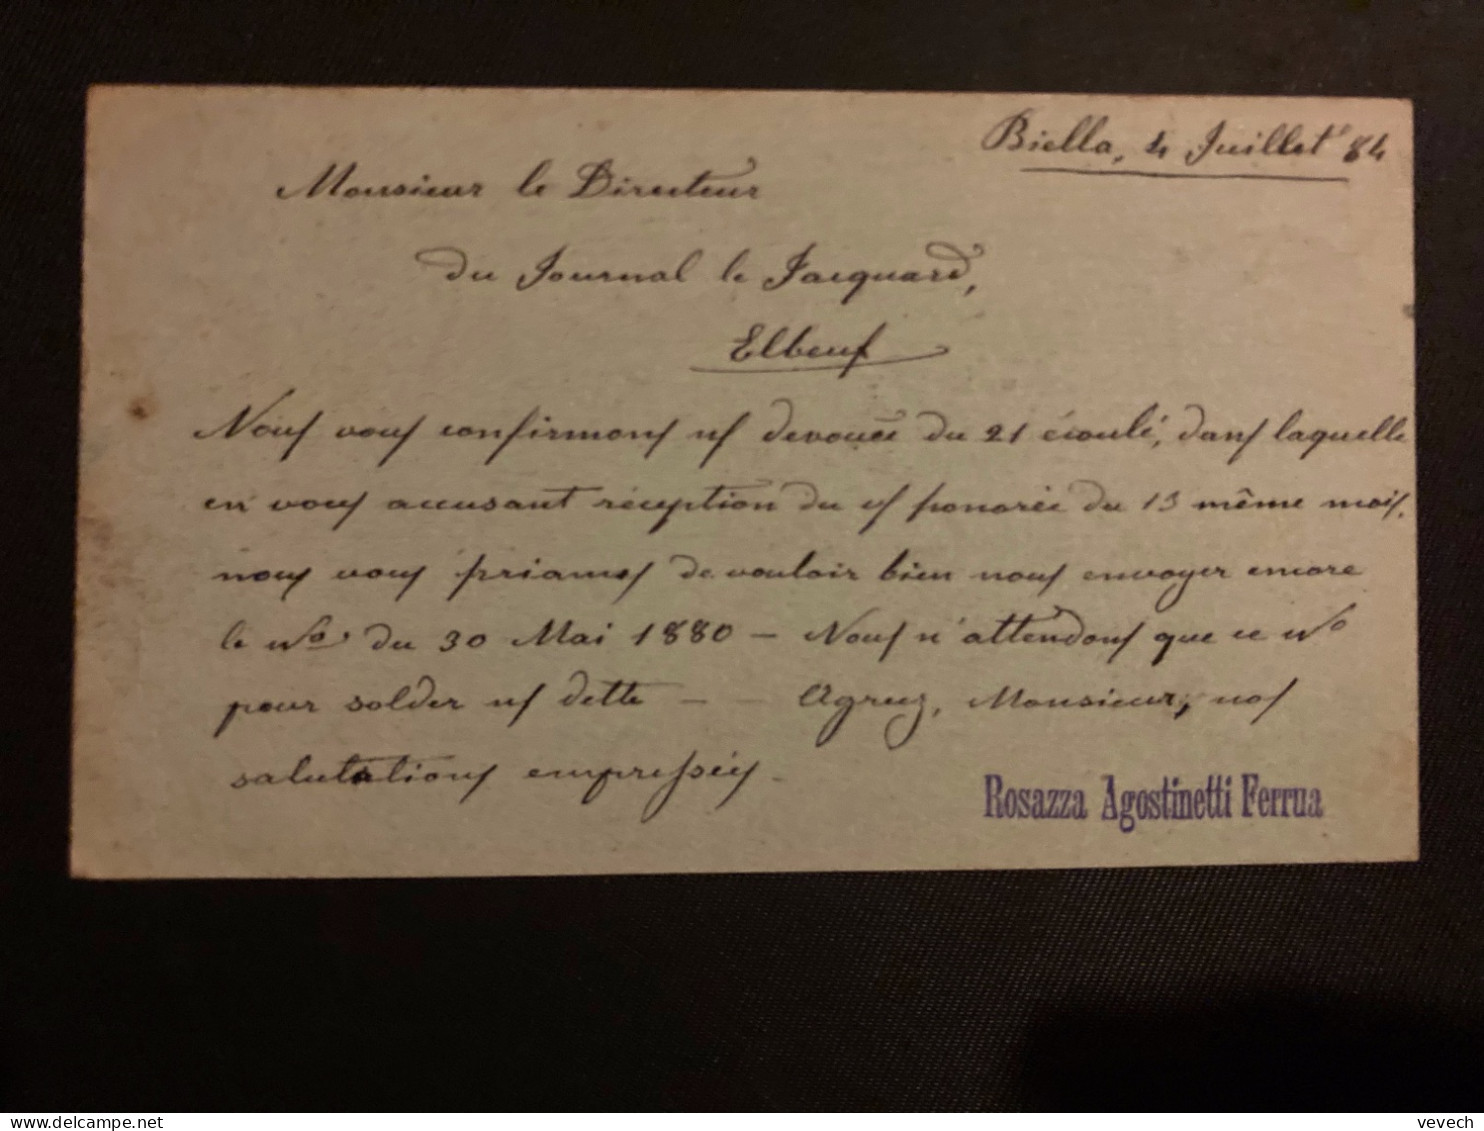 Biella, 4 Juillet 84
Monsieur le Directeur
du Journal le Jacquard,
Elbeuf
Nous vous confirmons ns devouée du 21 écoulé, dans laquelle
en vous accusant réception du vs honorée du 13 même mois,
nous vous priames de vouloir bien nous envoyer encore
le No du 30 Mai 1880 — Nous n'attendons que ce No
pour solder ns dette — — Agreez, Monsieur, nos
salutations empressées.
Rosazza Agostinetti Ferrua
vevech